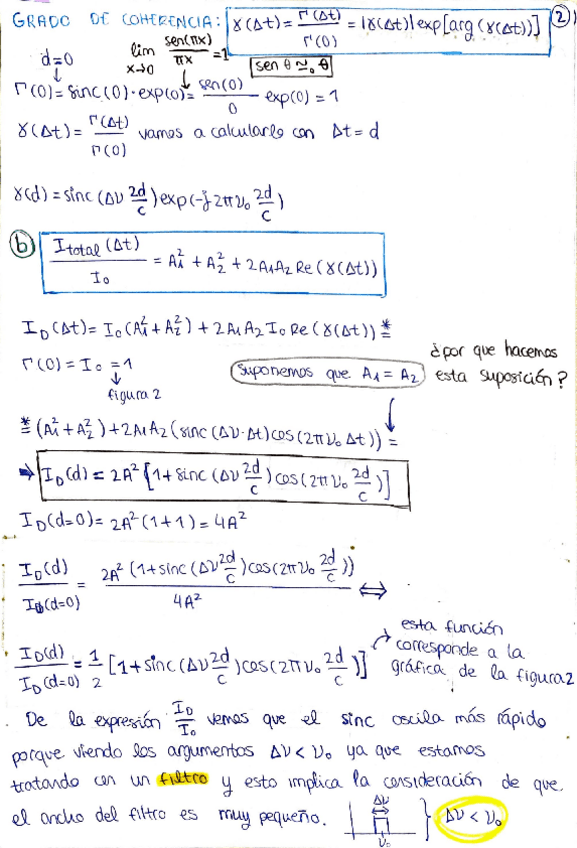 GRADO DE COHERENCIA: γ(Δt) = Γ(Δt)/Γ(0) = |γ(Δt)| exp[arg(γ(Δt))] ②
d=0 lim x→0 sen(πx)/πx = 1 sen θ ≃₀ θ
Γ(0) = sinc(0)·exp(0) = sen(0)/0 exp(0) = 1
γ(Δt) = Γ(Δt)/Γ(0) vamos a calcularlo con Δt = d
γ(d) = sinc(Δν 2d/c) exp(-j 2πν₀ 2d/c)
ⓑ Itotal(Δt)/I₀ = A₁² + A₂² + 2A₁A₂ Re(γ(Δt))
I_D(Δt) = I₀(A₁² + A₂²) + 2A₁A₂ I₀ Re(γ(Δt)) *=
Γ(0) = I₀ = 1
figura 2
Suponemos que A₁ = A₂
¿por que hacemos
esta suposición?
*= (A₁² + A₂²) + 2A₁A₂(sinc(Δν·Δt)cos(2πν₀Δt)) =
⇒ I_D(d) = 2A² [1 + sinc(Δν 2d/c) cos(2πν₀ 2d/c)]
I_D(d=0) = 2A²(1+1) = 4A²
I_D(d)/I_D(d=0) = 2A²(1 + sinc(Δν 2d/c)cos(2πν₀ 2d/c))/4A² ⇔
I_D(d)/I_D(d=0) = 1/2 [1 + sinc(Δν 2d/c)cos(2πν₀ 2d/c)]
esta función
corresponde a la
gráfica de la figura 2
. De la expresión I_D/I₀ vemos que el sinc oscila más rápido
porque viendo los argumentos Δν < ν₀ ya que estamos
tratando con un filtro y esto implica la consideración de que
el ancho del filtro es muy pequeño. Δν ν₀ } Δν < ν₀